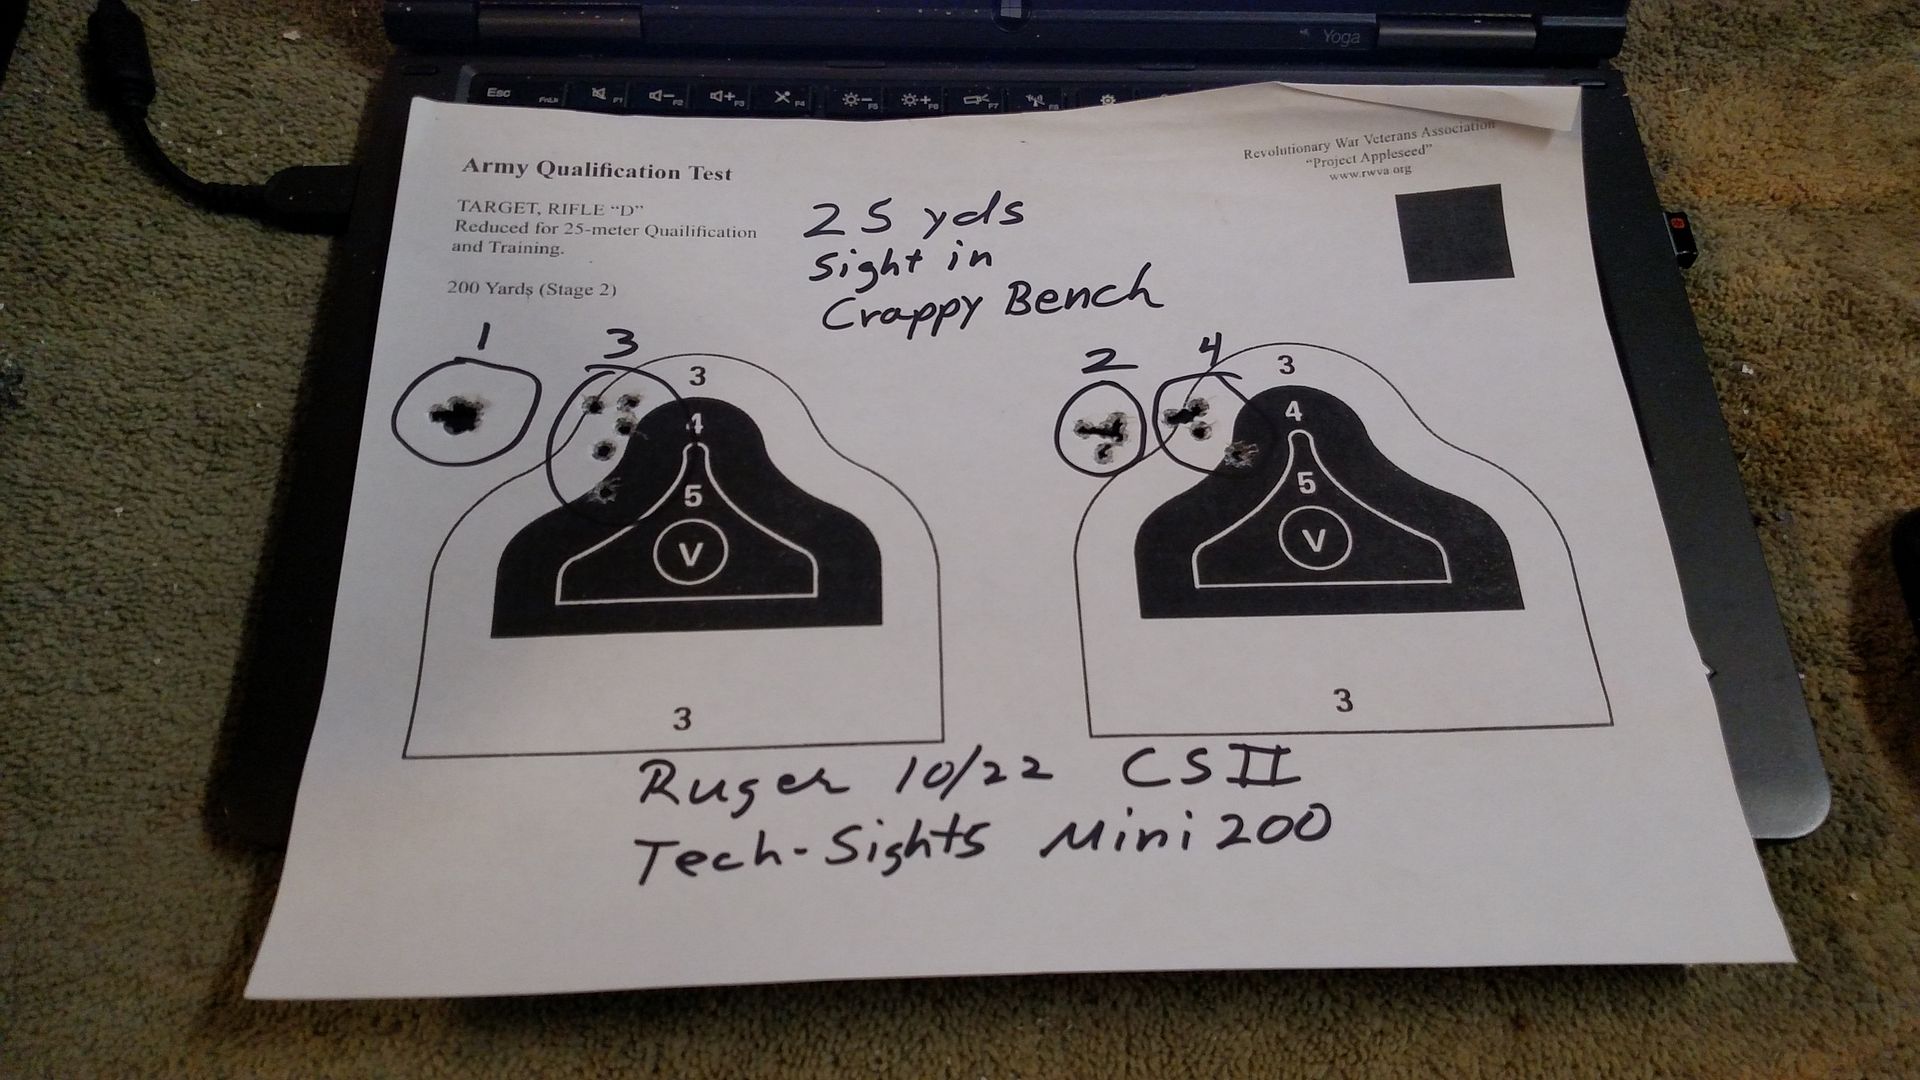 Yoga
Esc FnLk F1 F2 F3 F4 F5 F6 F7 F8
Army Qualification Test
TARGET, RIFLE “D”
Reduced for 25-meter Quailification
and Training.
200 Yards (Stage 2)
Revolutionary War Veterans Association
“Project Appleseed”
www.rwva.org
25 yds
Sight in
Crappy Bench
1
3
3
4
5
V
3
2
4
3
4
5
V
3
Ruger 10/22 CSII
Tech-Sights Mini 200